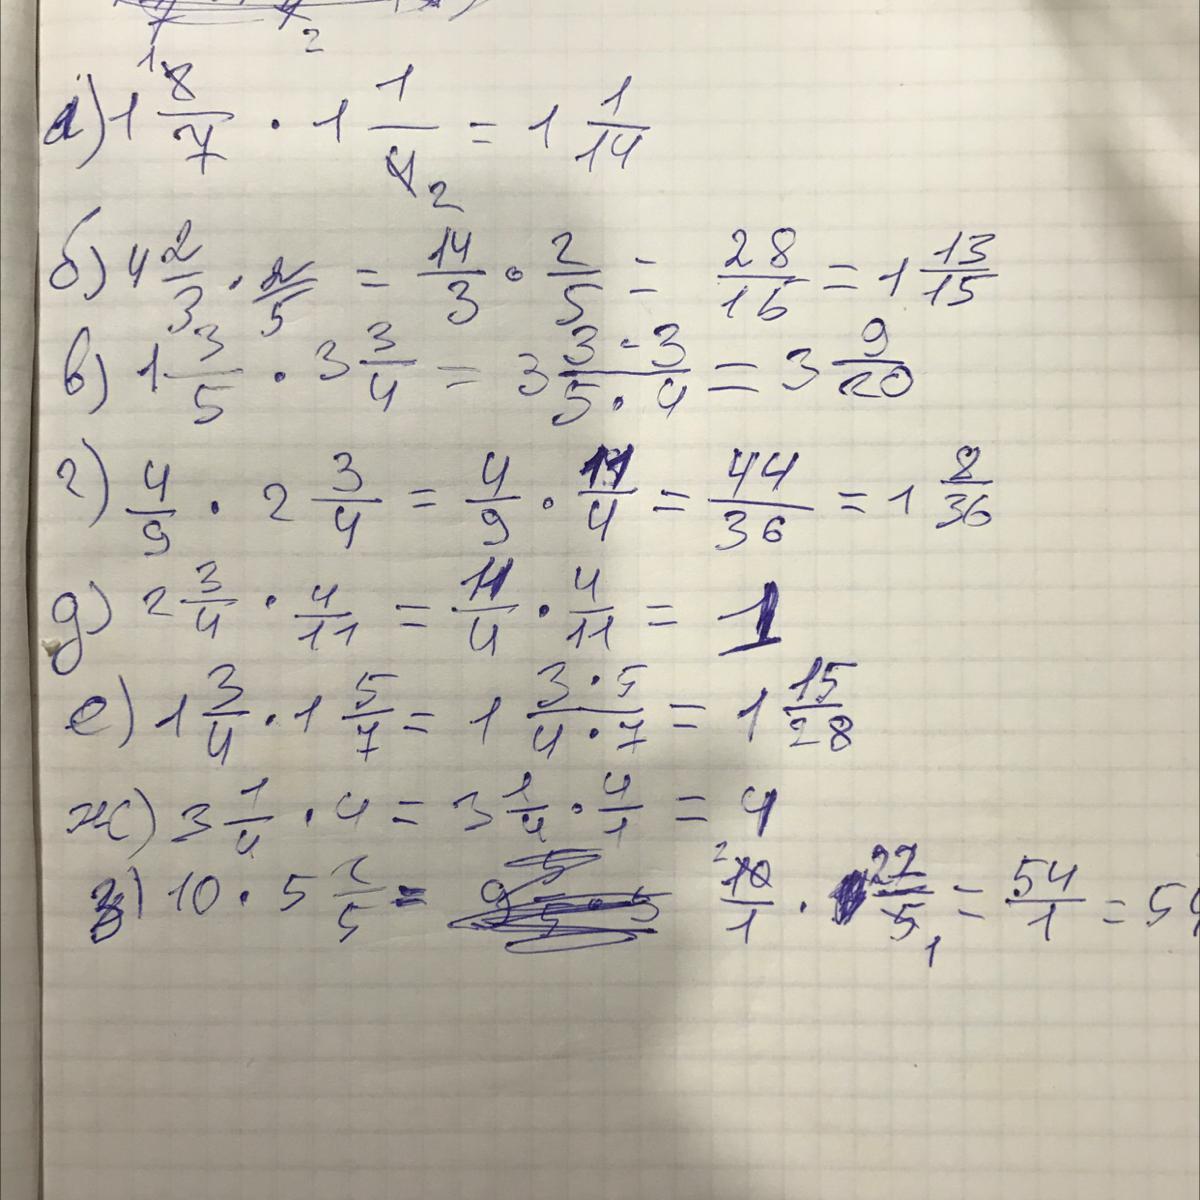 1 2
а) 1 8/7 · 1 1/4 2 = 1 1/14
б) 4 2/3 · 2/5 = 14/3 · 2/5 = 28/16 = 1 13/15
в) 1 3/5 · 3 3/4 = 3 3·3/5·4 = 3 9/20
г) 4/9 · 2 3/4 = 4/9 · 11/4 = 44/36 = 1 8/36
д) 2 3/4 · 4/11 = 11/4 · 4/11 = 1
е) 1 3/4 · 1 5/7 = 1 3·5/4·7 = 1 15/28
ж) 3 1/4 · 4 = 3 1/4 · 4/1 = 4
з) 10 · 5 2/5 = 2 10/1 · 27/5 1 = 54/1 = 54